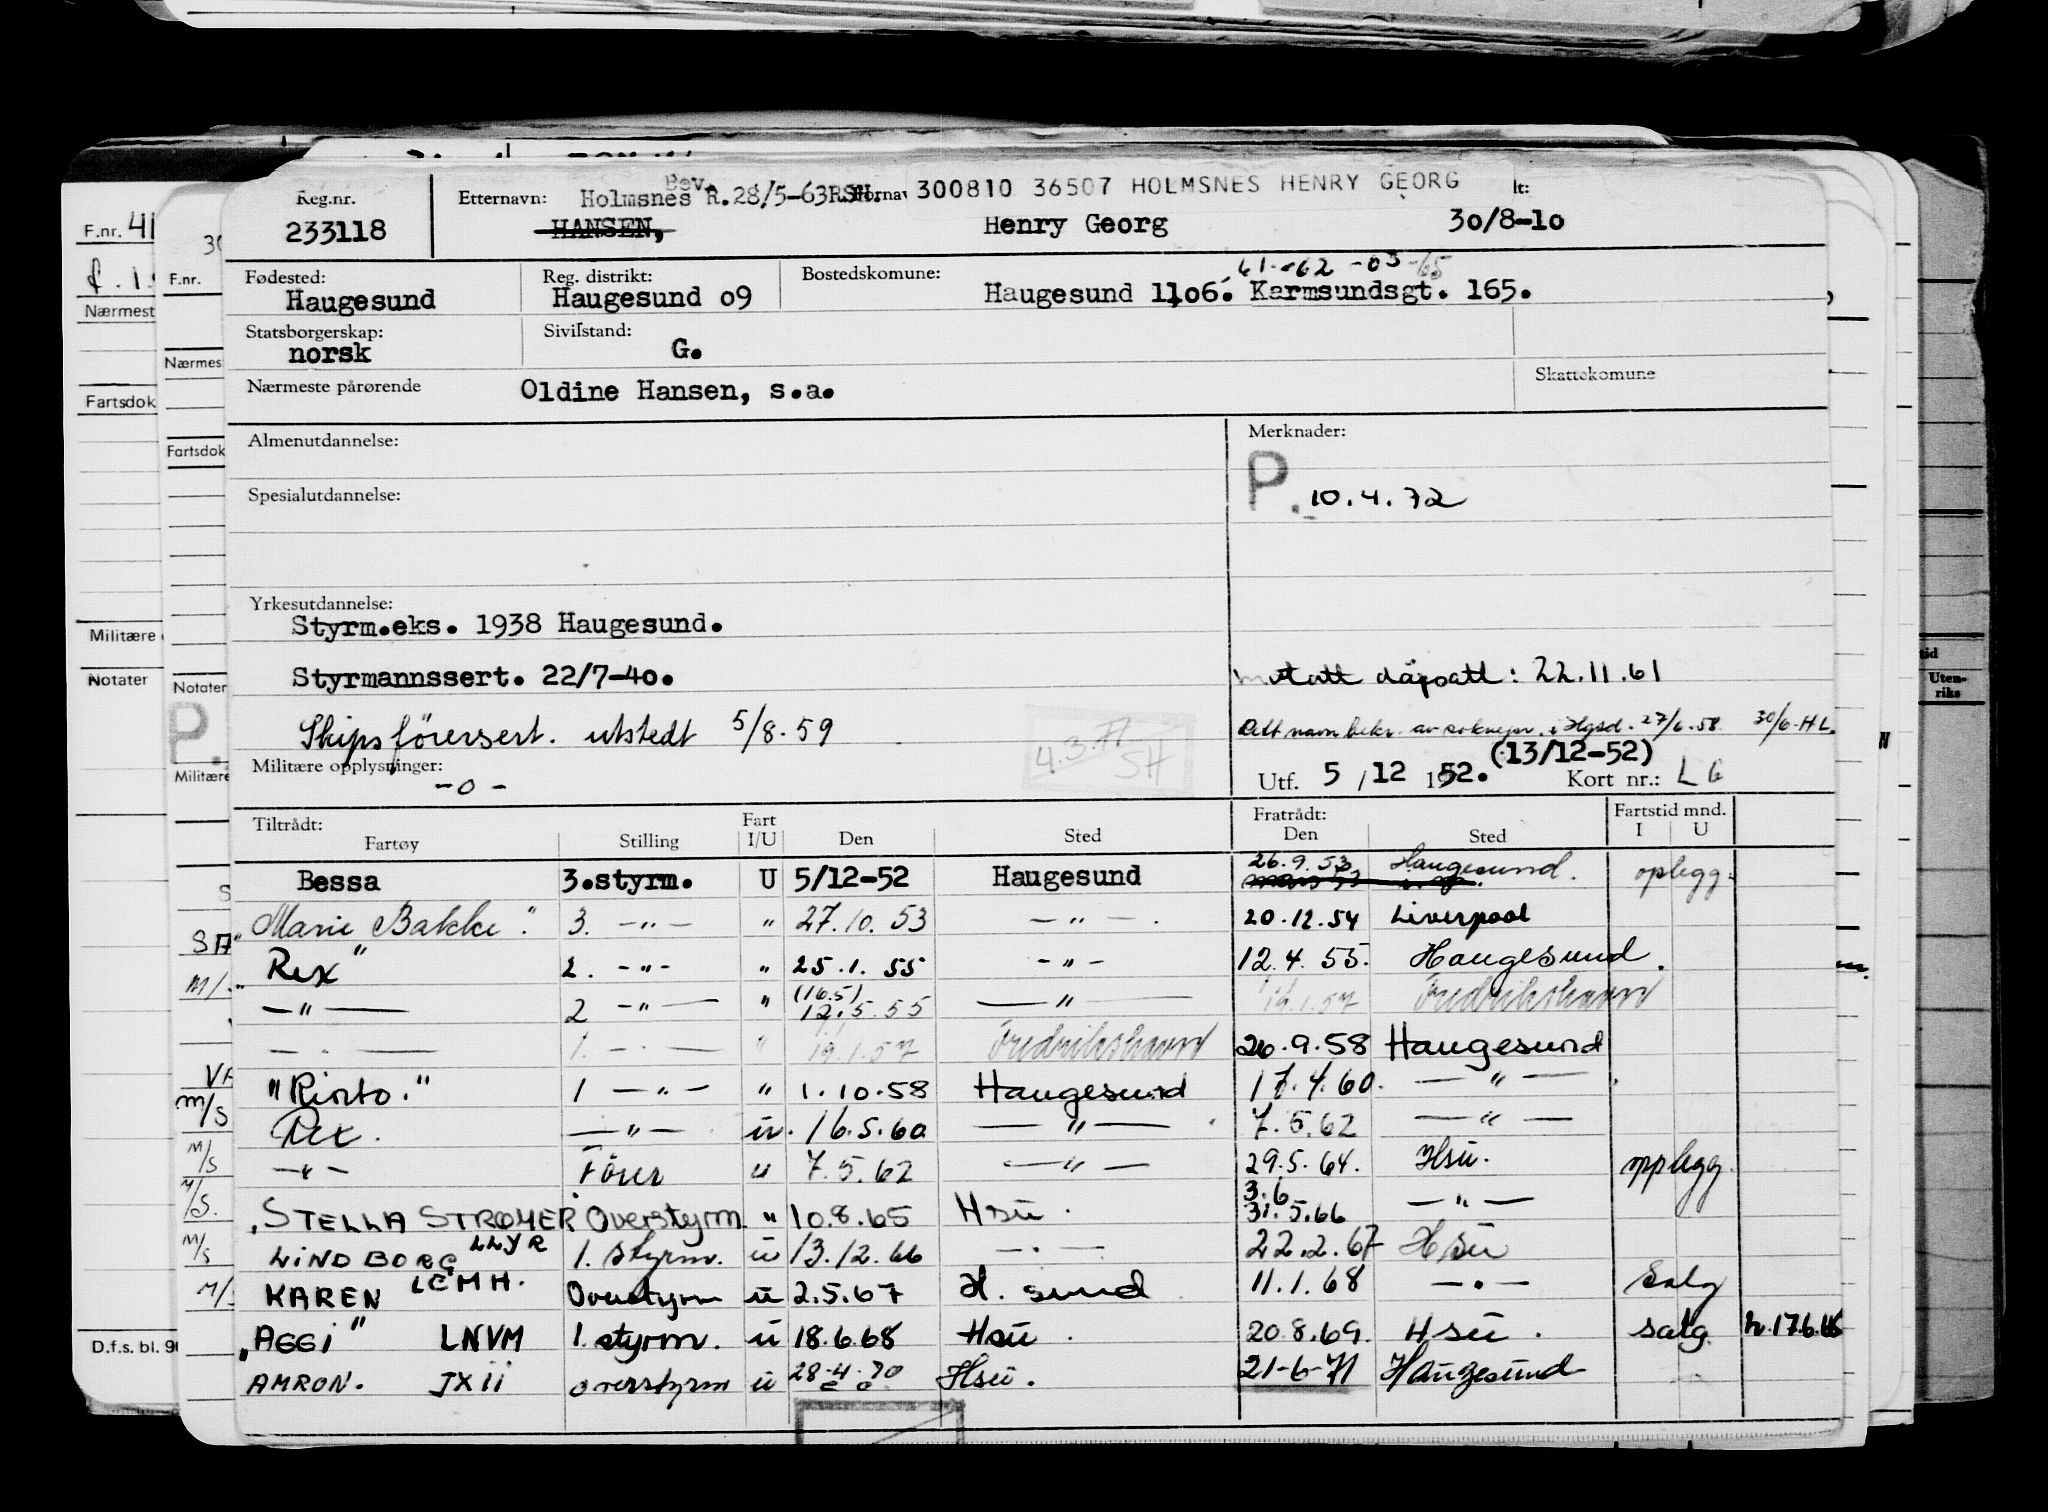 Reg.nr. Etternavn: Bev. Holmsnes R.28/5-63RSH. Fornav 300810 36507 HOLMSNES HENRY GEORG lt:
233118 HANSEN, Henry Georg 30/8-10
Fødested: Reg. distrikt: Bostedskomune: 61 -62 -63 -65
Haugesund Haugesund o9 Haugesund 1106. Karmsundsgt. 165.
Statsborgerskap: Sivilstand:
norsk G.
Nærmeste pårørende Oldine Hansen, s.a. Skattekomune
Almenutdannelse: Merknader:
P. 10.4.72
Spesialutdannelse:
Yrkesutdannelse:
Styrm.eks. 1938 Haugesund.
Styrmannssert. 22/7-40. dåpsatt: 22.11.61
Skipsförersert. utstedt 5/8.59 4.3.71 SH
Dett navn bekr. av soknepr. i Hgsd. 27/6.58. 30/6-HL.
Militære opplysninger: -o- Utf. 5/12 1952. (13/12-52) Kort nr.: L G
Tiltrådt: Fart Fratrådt: Fartstid mnd.
Fartøy Stilling I/U Den Sted Den Sted I U
Bessa 3.styrm. U 5/12-52 Haugesund 26.9.53 Haugesund. oplegg.
Marie Bakke". 3. -"- " 27.10.53 -"-. 20.12.54 Liverpool
Rex" 2. -"- " 25.1.55 -"- 12.4.55. Haugesund.
-"- 2 -"- " (16.5) 12.5.55 -"- 1.57 Fredrikshavn
-"- 1. -"- " 19.1.57 Fredrikshavn 26.9.58 Haugesund
"Rinto." 1 -"- " 1.10.58 Haugesund 17.4.60. -"-.
Rex. -"- u. 16.5.60 -"-. 7.5.62 -"-
-"- Förer u 7.5.62 -"- 29.5.64. Hsu. opplegg.
"STELLA STRØMER Overstyrm. " 10.8.65 Hsu. 3.6 31.5.66 -"-
LINDBORG LLYR 1. styrm. u 13.12.66 -"- 22.2.67 Hsu
KAREN LEMH. Overstyrm u 2.5.67 H. sund 11.1.68 -"- Salg
"AGGI" LNVM 1. styrm. u 18.6.68 Hsu. 20.8.69. Hsu. salg.
AMRON. JXII overstyrm u 28-4-70 Hsu. 21-6-71 Haugesund
F.nr. 41
Nærmest
Fartsdok
Militære
Notater
D.f.s. bl. 9
F.nr.
Nærmes
Fartsdok
Notater
P.
Militære
M/S
M/S
M/S.
M/S
Uten-
riks